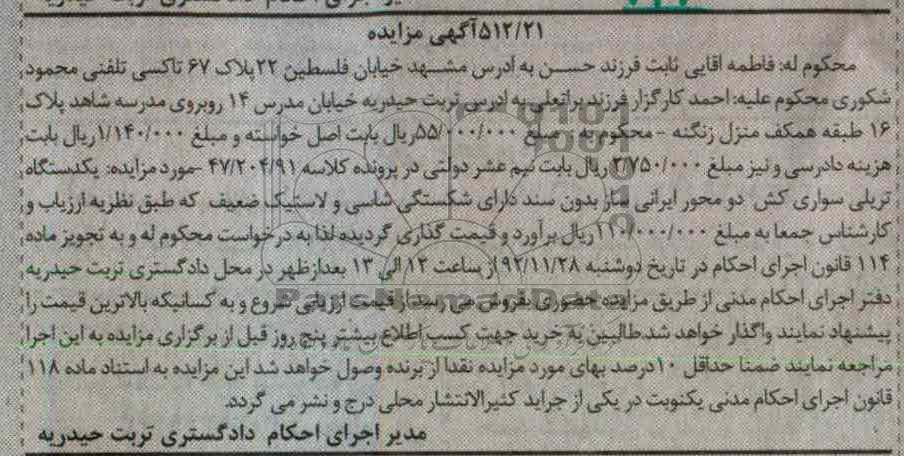 ۵۱۲/۲۱آگهی مزایده
محکوم له: فاطمه اقایی ثابت فرزند حسن به آدرس مشهد خیابان فلسطین ۲۲پلاک ۶۷ تاکسی تلفنی محمود
شکوری محکوم علیه: احمد کارگزار فرزند براتعلی به ادرس تربت حیدریه خیابان مدرس ۱۴ روبروی مدرسه شاهد پلاک
۱۶ طبقه همکف منزل زنگنه - محکوم به : مبلغ ۵۵/۰۰۰/۰۰۰ریال بابت اصل خواسته و مبلغ ۱/۱۴۰/۰۰۰ریال بابت
هزینه دادرسی و نیز مبلغ ۲/۷۵۰/۰۰۰ ریال بابت نیم عشر دولتی در پرونده کلاسه ۴۷/۲۰۴/۹۱ -مورد مزایده: یکدستگاه
تریلی سواری کش دو محور ایرانی ساز بدون سند دارای شکستگی شاسی و لاستیک ضعیف که طبق نظریه ارزیاب و
کارشناس جمعا به مبلغ ۱۱۰/۰۰۰/۰۰۰ریال برآورد و قیمت گذاری گردیده لذا به درخواست محکوم له و به تجویز ماده
۱۱۴ قانون اجرای احکام در تاریخ دوشنبه ۹۲/۱۱/۲۸ از ساعت ۱۲ الی ۱۳ بعدازظهر در محل دادگستری تربت حیدریه
دفتر اجرای احکام مدنی از طریق مزایده حضوری بفروش می رسد از قیمت ارزیابی شروع و به کسانیکه بالاترین قیمت را
پیشنهاد نمایند واگذار خواهد شد.طالبین به خرید جهت کسب اطلاع بیشتر پنج روز قبل از برگزاری مزایده به این اجرا
مراجعه نمایند ضمنا حداقل ۱۰درصد بهای مورد مزایده نقدا از برنده وصول خواهد شد این مزایده به استناد ماده ۱۱۸
قانون اجرای احکام مدنی یکنوبت در یکی از جراید کثیرالانتشار محلی درج و نشر می گردد.
مدیر اجرای احکام دادگستری تربت حیدریه
ParsNamadData